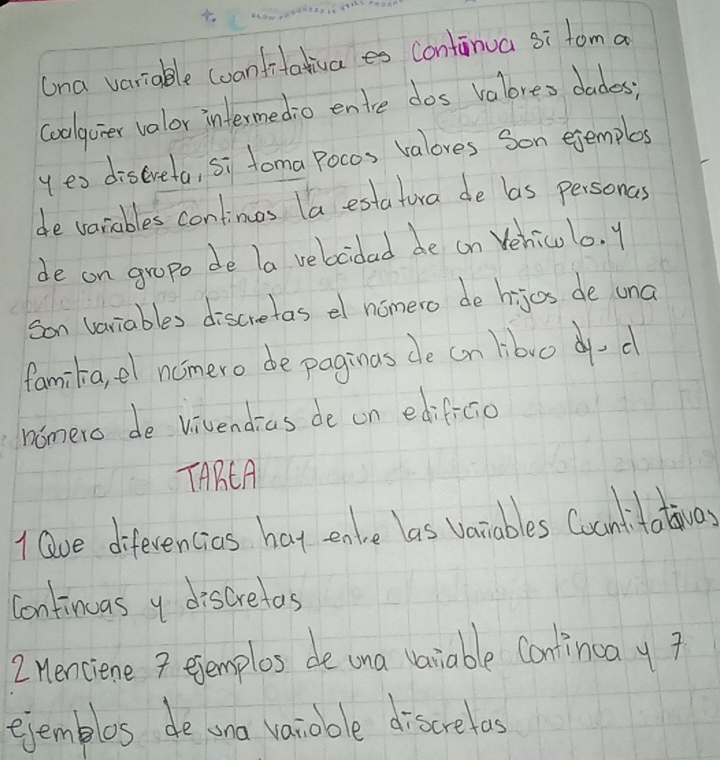 Una variable cuantitativa es continua si toma
cualquier valor intermedio entre dos valores dados;
y es discreta, si toma pocos valores son ejemplos
de variables continuas la estatura de las personas
de un grupo de la velocidad de un vehiculo. y
son variables discretas el número de hijos de una
familia, el número de paginas de un libro y el
número de vivendias de un edificio
TAREA
1 Que diferencias hay entre las variables cuantitativas
continuas y discretas
2 Menciene 7 ejemplos de una variable continua y 7
ejemplos de una variable discretas